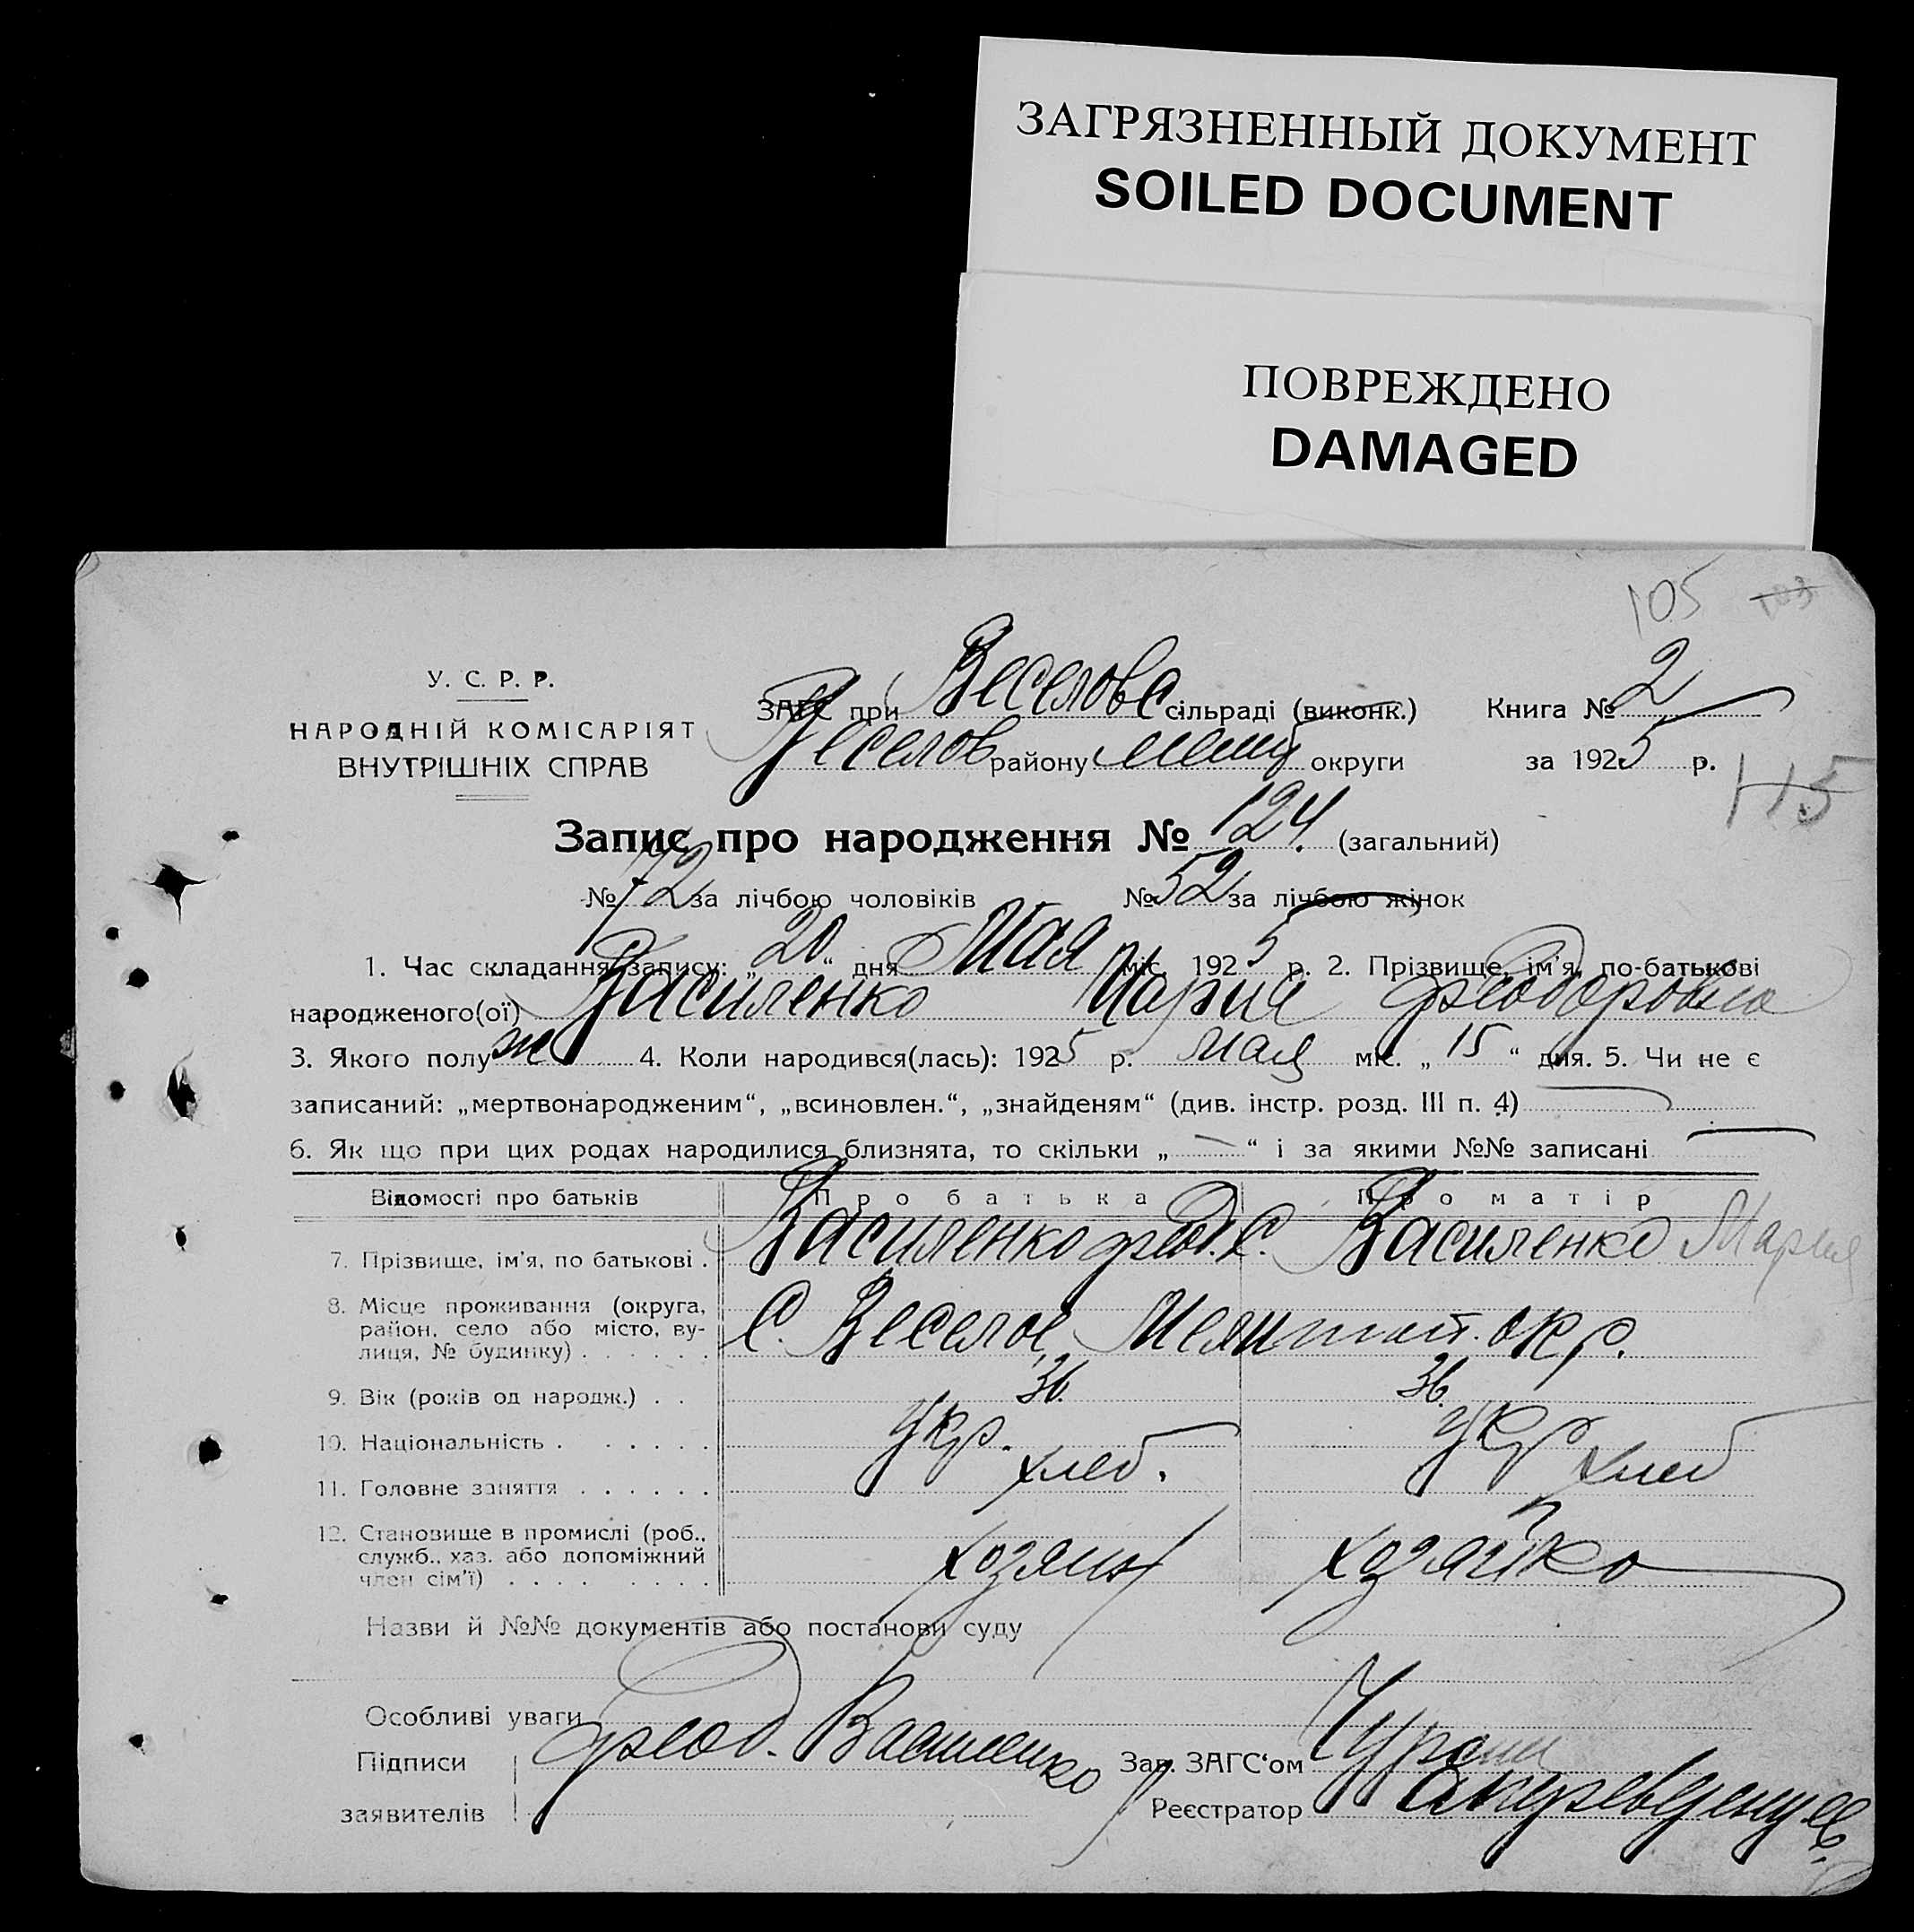 ЗАГРЯЗНЕННЫЙ ДОКУМЕНТ
SOILED DOCUMENT
ПОВРЕЖДЕНО
DAMAGED
105 103
У. С. Р. Р.
НАРОДНІЙ КОМІСАРІЯТ
ВНУТРІШНІХ СПРАВ
ЗАГС при Веселовс. сільраді (виконк.) Книга № 2
Веселов району Мелит округи за 1925 р.
115
Запис про народження № 124. (загальний)
№ 72 за лічбою чоловіків № 52 за лічбою жінок
1. Час складання запису: „20“ дня Мая міс. 1925 р. 2. Прізвище, ім'я, по-батькові
народженого(ої) Василенко Мария Феодоровна
3. Якого полу ж 4. Коли народився(лась): 1925 р. Мая міс. „15“ дня. 5. Чи не є
записаний: „мертвонародженим“, „всиновлен.“, „знайденям“ (див. інстр. розд. III п. 4)
6. Як що при цих родах народилися близнята, то скільки „ “ і за якими №№ записані
Відомості про батьків Про батька Про матір
7. Прізвище, ім'я, по батькові . Василенко Феод. С. Василенко Мария
8. Місце проживання (округа,
район, село або місто, ву-
лиця, № будинку) . . . . . . С. Веселое, Мелитоп. окр.
9. Вік (років од народж.) . . 36. 36.
10. Національність . . . . . . Укр. Укр
11. Головне заняття . . . . . . хлеб. хлеб
12. Становище в промислі (роб.,
служб., хаз. або допоміжний
член сім'ї) . . . . . . . . хозяин хозяйка
Назви й №№ документів або постанови суду
Особливі уваги
Підписи Феод. Василенко Зав. ЗАГС'ом
заявителів Реєстратор